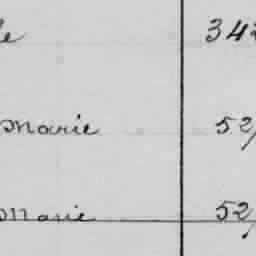 le 342
Marie 52/
Marie 52/